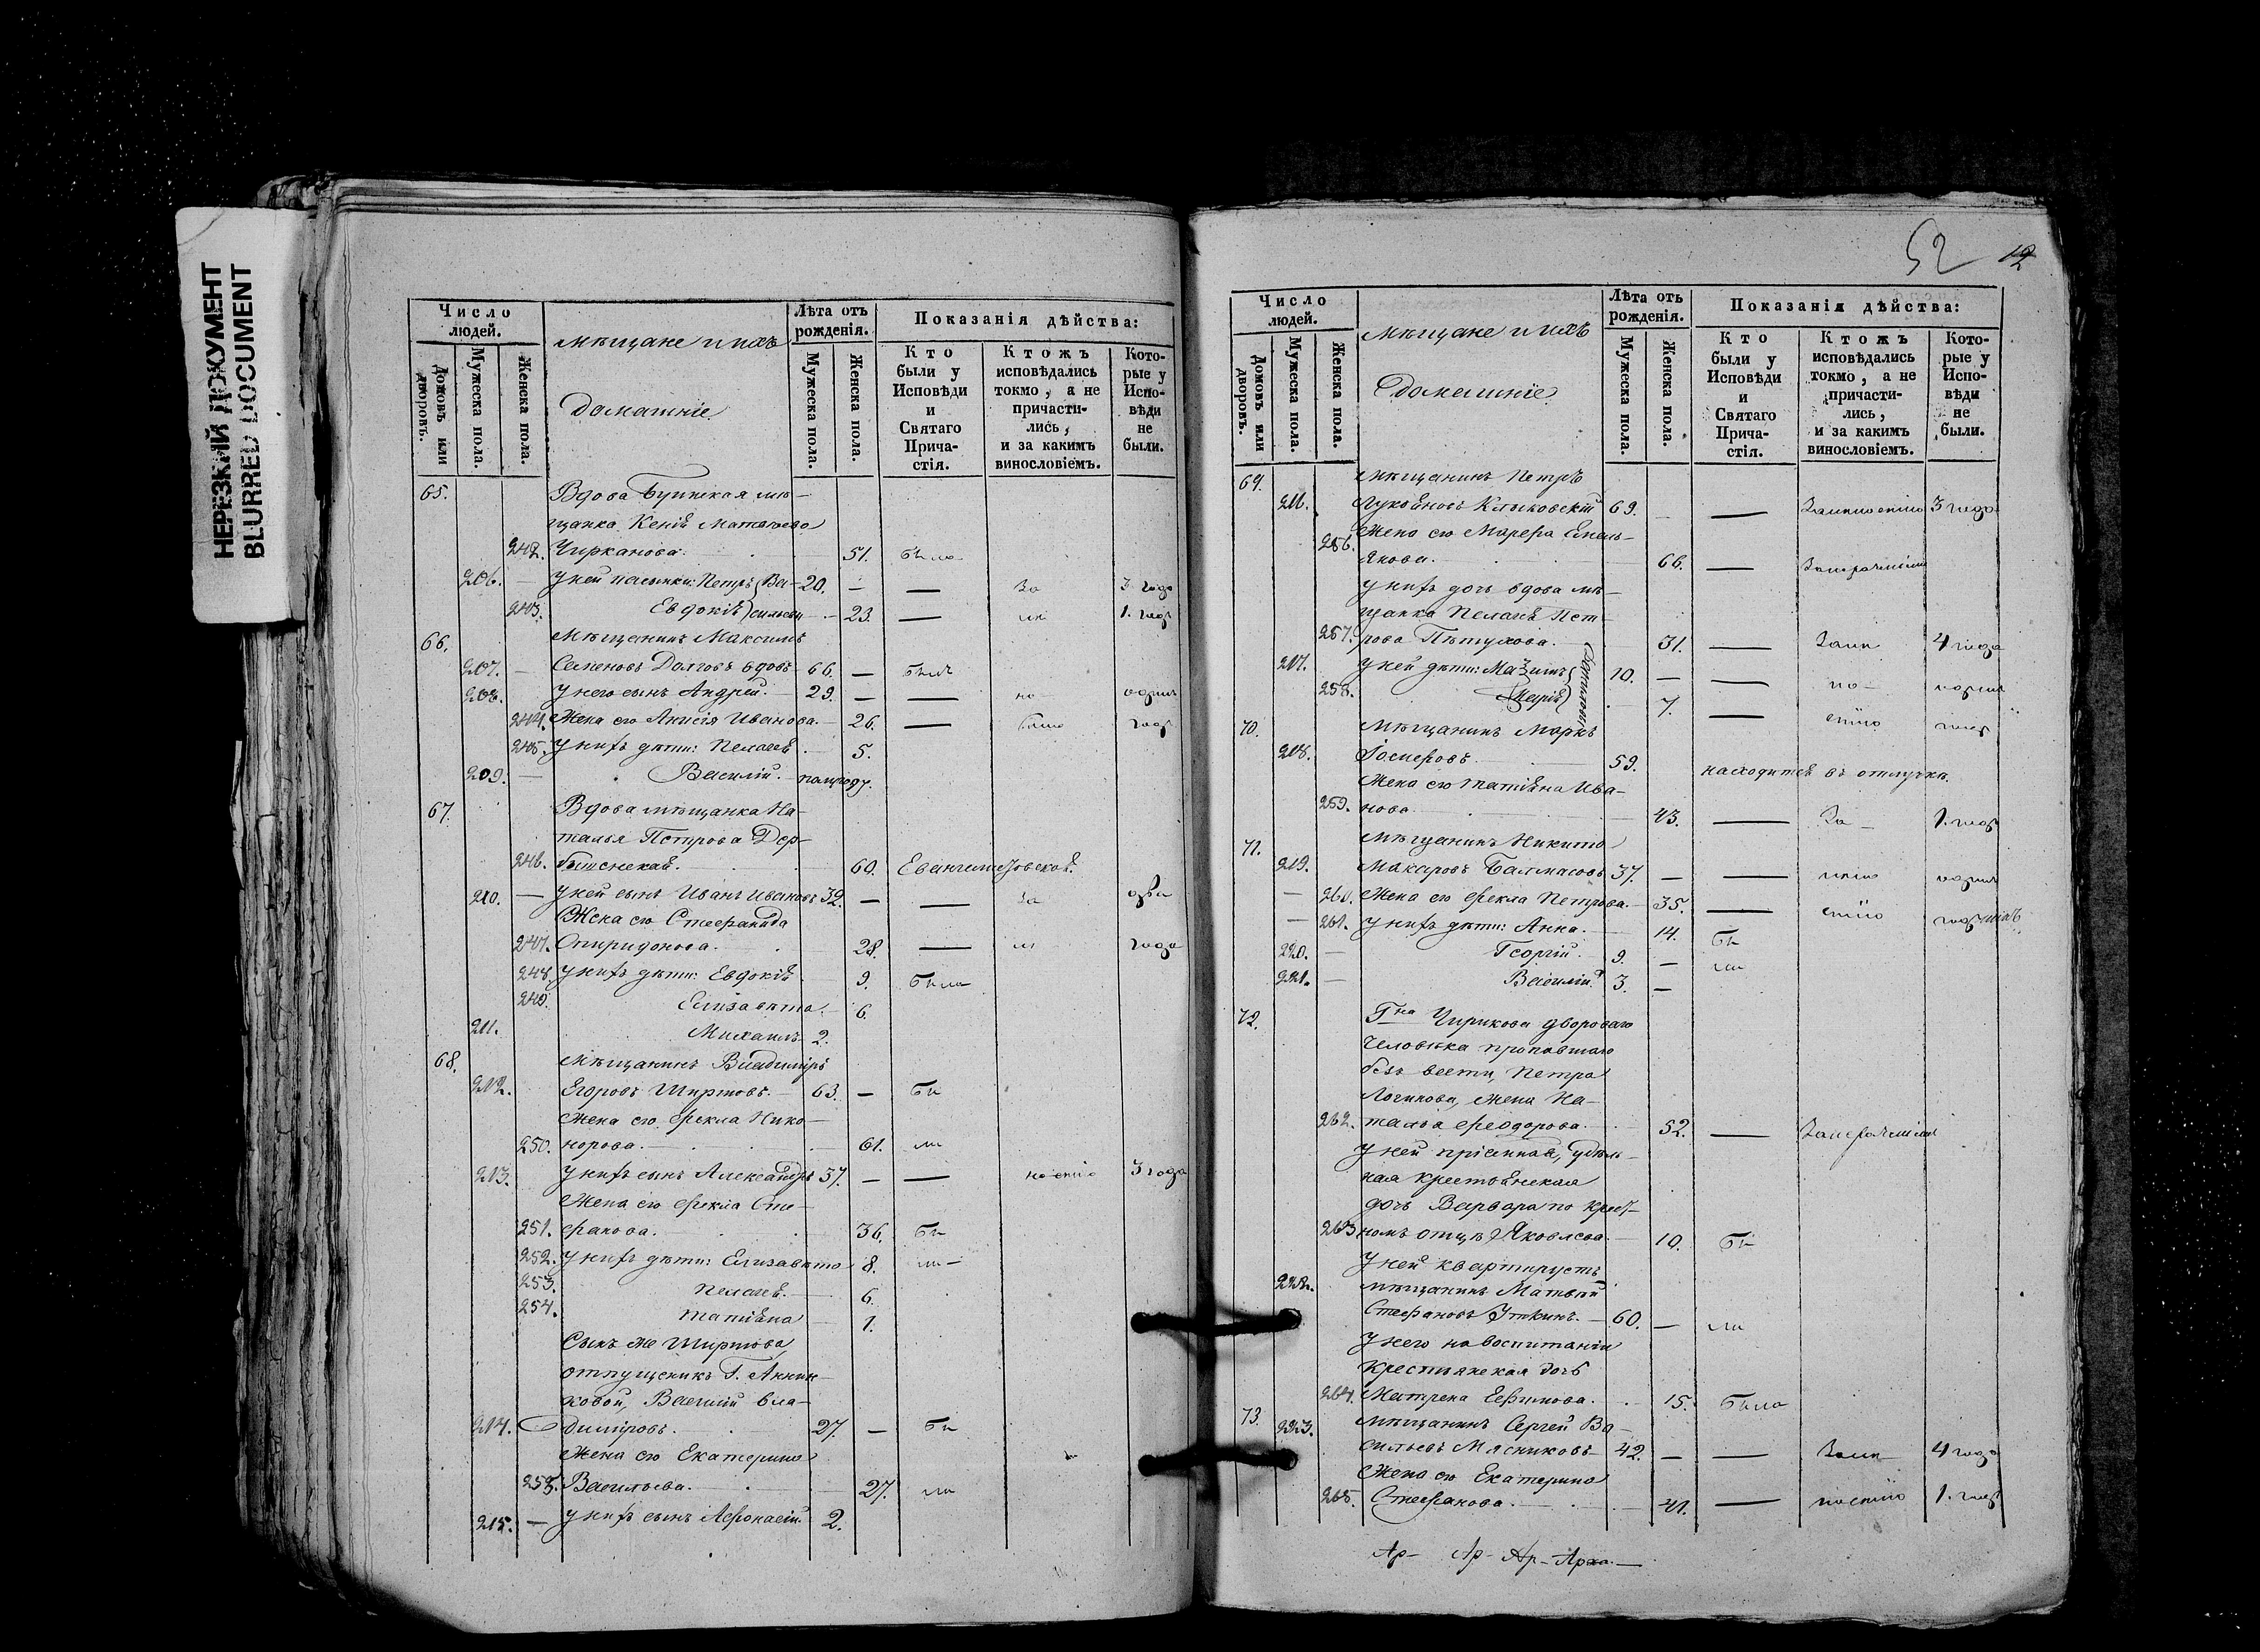 НЕРЕЗКИЙ ДОКУМЕНТ
BLURRED DOCUMENT
Число людей.
Домовъ или дворовъ.
Мужеска пола.
Женска пола.
мѣщане и ихъ
домашніе
Лѣта отъ рожденія.
Мужеска пола.
Женска пола.
Показанія дѣйства:
Кто были у Исповѣди и Святаго Причастія.
Ктожъ исповѣдались токмо, а не причастились, и за какимъ винословіемъ.
Которые у Исповѣди не были.
65. Вдова Буинская мѣ-
щанка Ксенія Матвѣева
242. Чирканова. 51. была
206. — У ней пасынки: Петръ Ва- 20. — — За 3 года
203. Евдокія сильевы — 23. — 1. годъ
66. Мѣщанинъ Максимъ
207. — Семеновъ Долговъ вдовъ 66. — былъ
208. У него сынъ Андрей. — 29. — — не
244. Жена его Анисія Иванова. — 26. — годъ
245. У нихъ дѣти: Пелагея. 5.
209. — Василій. — полугоду.
67. Вдова мѣщанка На-
талья Петрова Дер-
246. 60.
210. — У ней сынъ Иванъ Ивановъ 32. — — за два
Жена его Стефанида
247. Спиридонова. 28. — года
248. У нихъ дѣти: Евдокія 9. была
249. Елизавета. 6.
211. Михаилъ. 2.
68. Мѣщанинъ Владиміръ
212. Егоровъ Ширшовъ. — 63. — Бы
Жена его Ѳекла Нико-
250. норова. 61. ли
213. У нихъ сынъ Александръ 37. — — 3 года
Жена его Ѳекла Сте-
251. фанова. 36. Бы
252. У нихъ дѣти: Елизавета 8. ли —
253. Пелагея. 6.
254. Татіяна 1.
Сынъ же Ширшова,
отпущеникъ Г. Аннин-
ковой, Василій Вла-
214. диміровъ. 27. — Бы
Жена его Екатерина
255. Васильева. 27. ли
215. — У нихъ сынъ Аѳанасій. 2.
52 12
Число людей.
Домовъ или дворовъ.
Мужеска пола.
Женска пола.
мѣщане и ихъ
домашніе
Лѣта отъ рожденія.
Мужеска пола.
Женска пола.
Показанія дѣйства:
Кто были у Исповѣди и Святаго Причастія.
Ктожъ исповѣдались токмо, а не причастились, и за какимъ винословіемъ.
Которые у Исповѣди не были.
69. Мѣщанинъ Петръ
216. Лукояновъ 69. — — 3 года
Жена его Марѳа Емель-
256. янова. 66. —
У нихъ дочь вдова мѣ-
щанка Пелагея Пет-
257. рова Пѣтухова. 31. — 4 года
217. У ней дѣти: 10. — —
258. Марія 7. — годъ
70. Мѣщанинъ Маркъ
218. 59. находится въ отлучкѣ.
Жена его Татіяна Ива-
259. нова 43. — За — 1. годъ
71. Мѣщанинъ Никита
219. Макаровъ Балмасовъ 37. — —
— 260. Жена его Ѳекла Петрова. — 35. —
— 261. У нихъ дѣти: Анна. 14. Бы
220. — Георгій. 9. — ли
221. — Василій. 3. —
72. Гна Чирикова двороваго
человѣка пропавшаго
безъ вести, Петра
Логинова, жена На-
262. талья Ѳеодорова. 52. —
У ней пріемная, удѣль-
ная крестьянская
дочь Варвара по крест-
263 номъ отцѣ Яковлева. 10. Бы
У ней квартируетъ
222. мѣщанинъ Матвѣй
Стефановъ Уткинъ. — 60. — ли
У него на воспитаніи
крестьянская дочь
264. Матрена Ефимова. 15. Была
73. 223. Мѣщанинъ Сергей Ва-
сильевъ Мясниковъ — 42. — — 4 года
Жена его Екатерина
265. Стефанова. 41. — 1. годъ
Ар- Ар- Ар- Арха. —